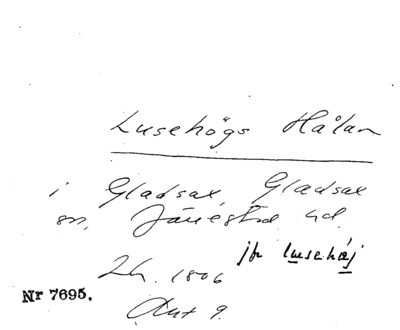 Lusehögs Hålan
i Gladsax, Gladsax
sn, Järrestad hd.
Lh. 1806
jfr lusehøj
Nr 7695.
Akt 9.